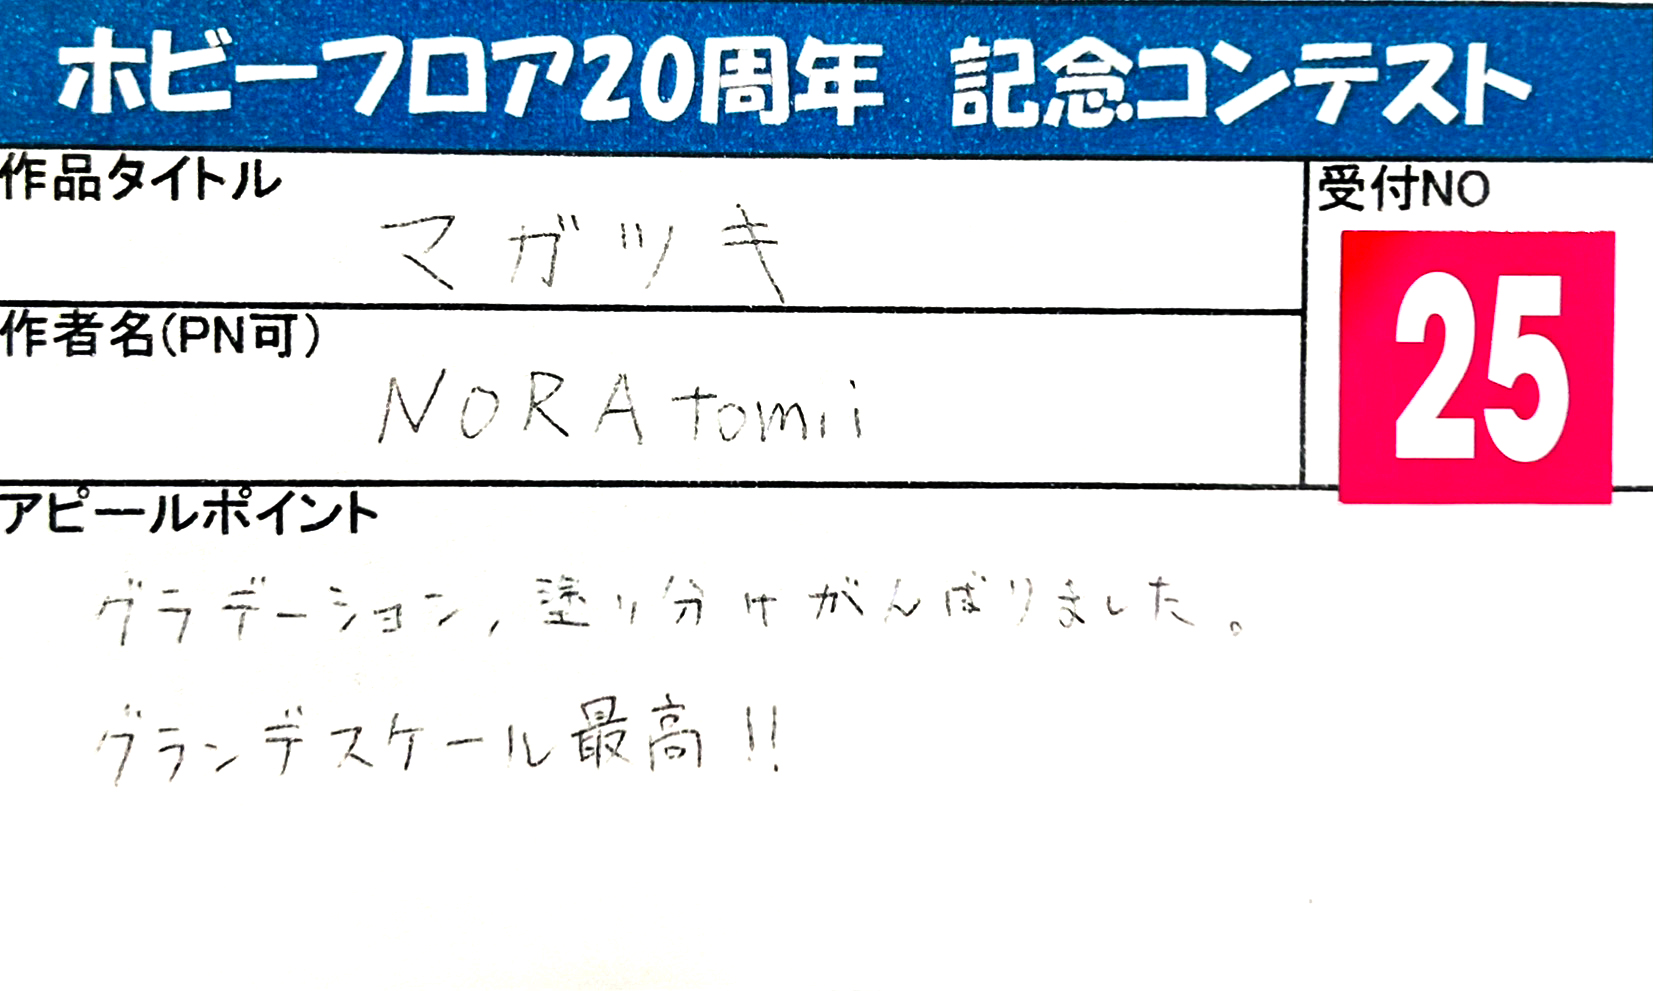 ホビーフロア20周年 記念コンテスト
作品タイトル
マガツキ
受付NO
25
作者名(PN可)
NORA tomii
アピールポイント
グラデーション, 塗り分けがんばりました。
グランデスケール最高!!